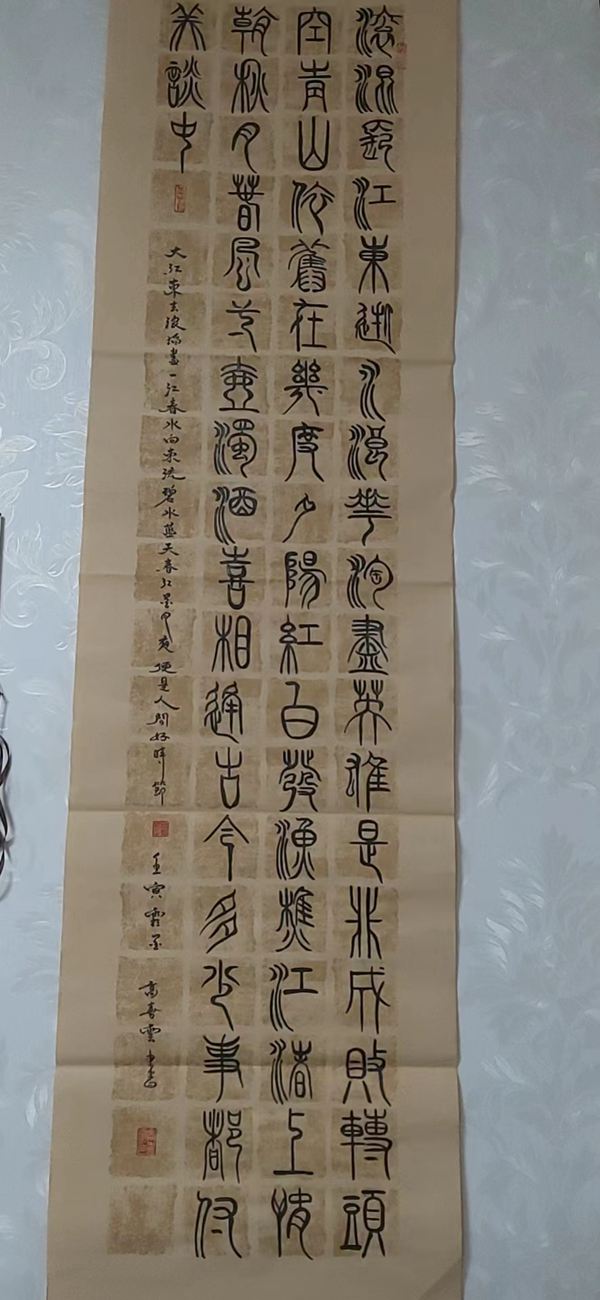 滾滾長江東逝水浪花淘盡英雄是非成敗轉頭
空青山依舊在幾度夕陽紅白發漁樵江渚上慣
看秋月春風一壺濁酒喜相逢古今多少事都付
笑談中
大江東去浪淘盡一江春水向東流碧水藍天春江花月夜便是人間好時節
壬寅
高喜雲書